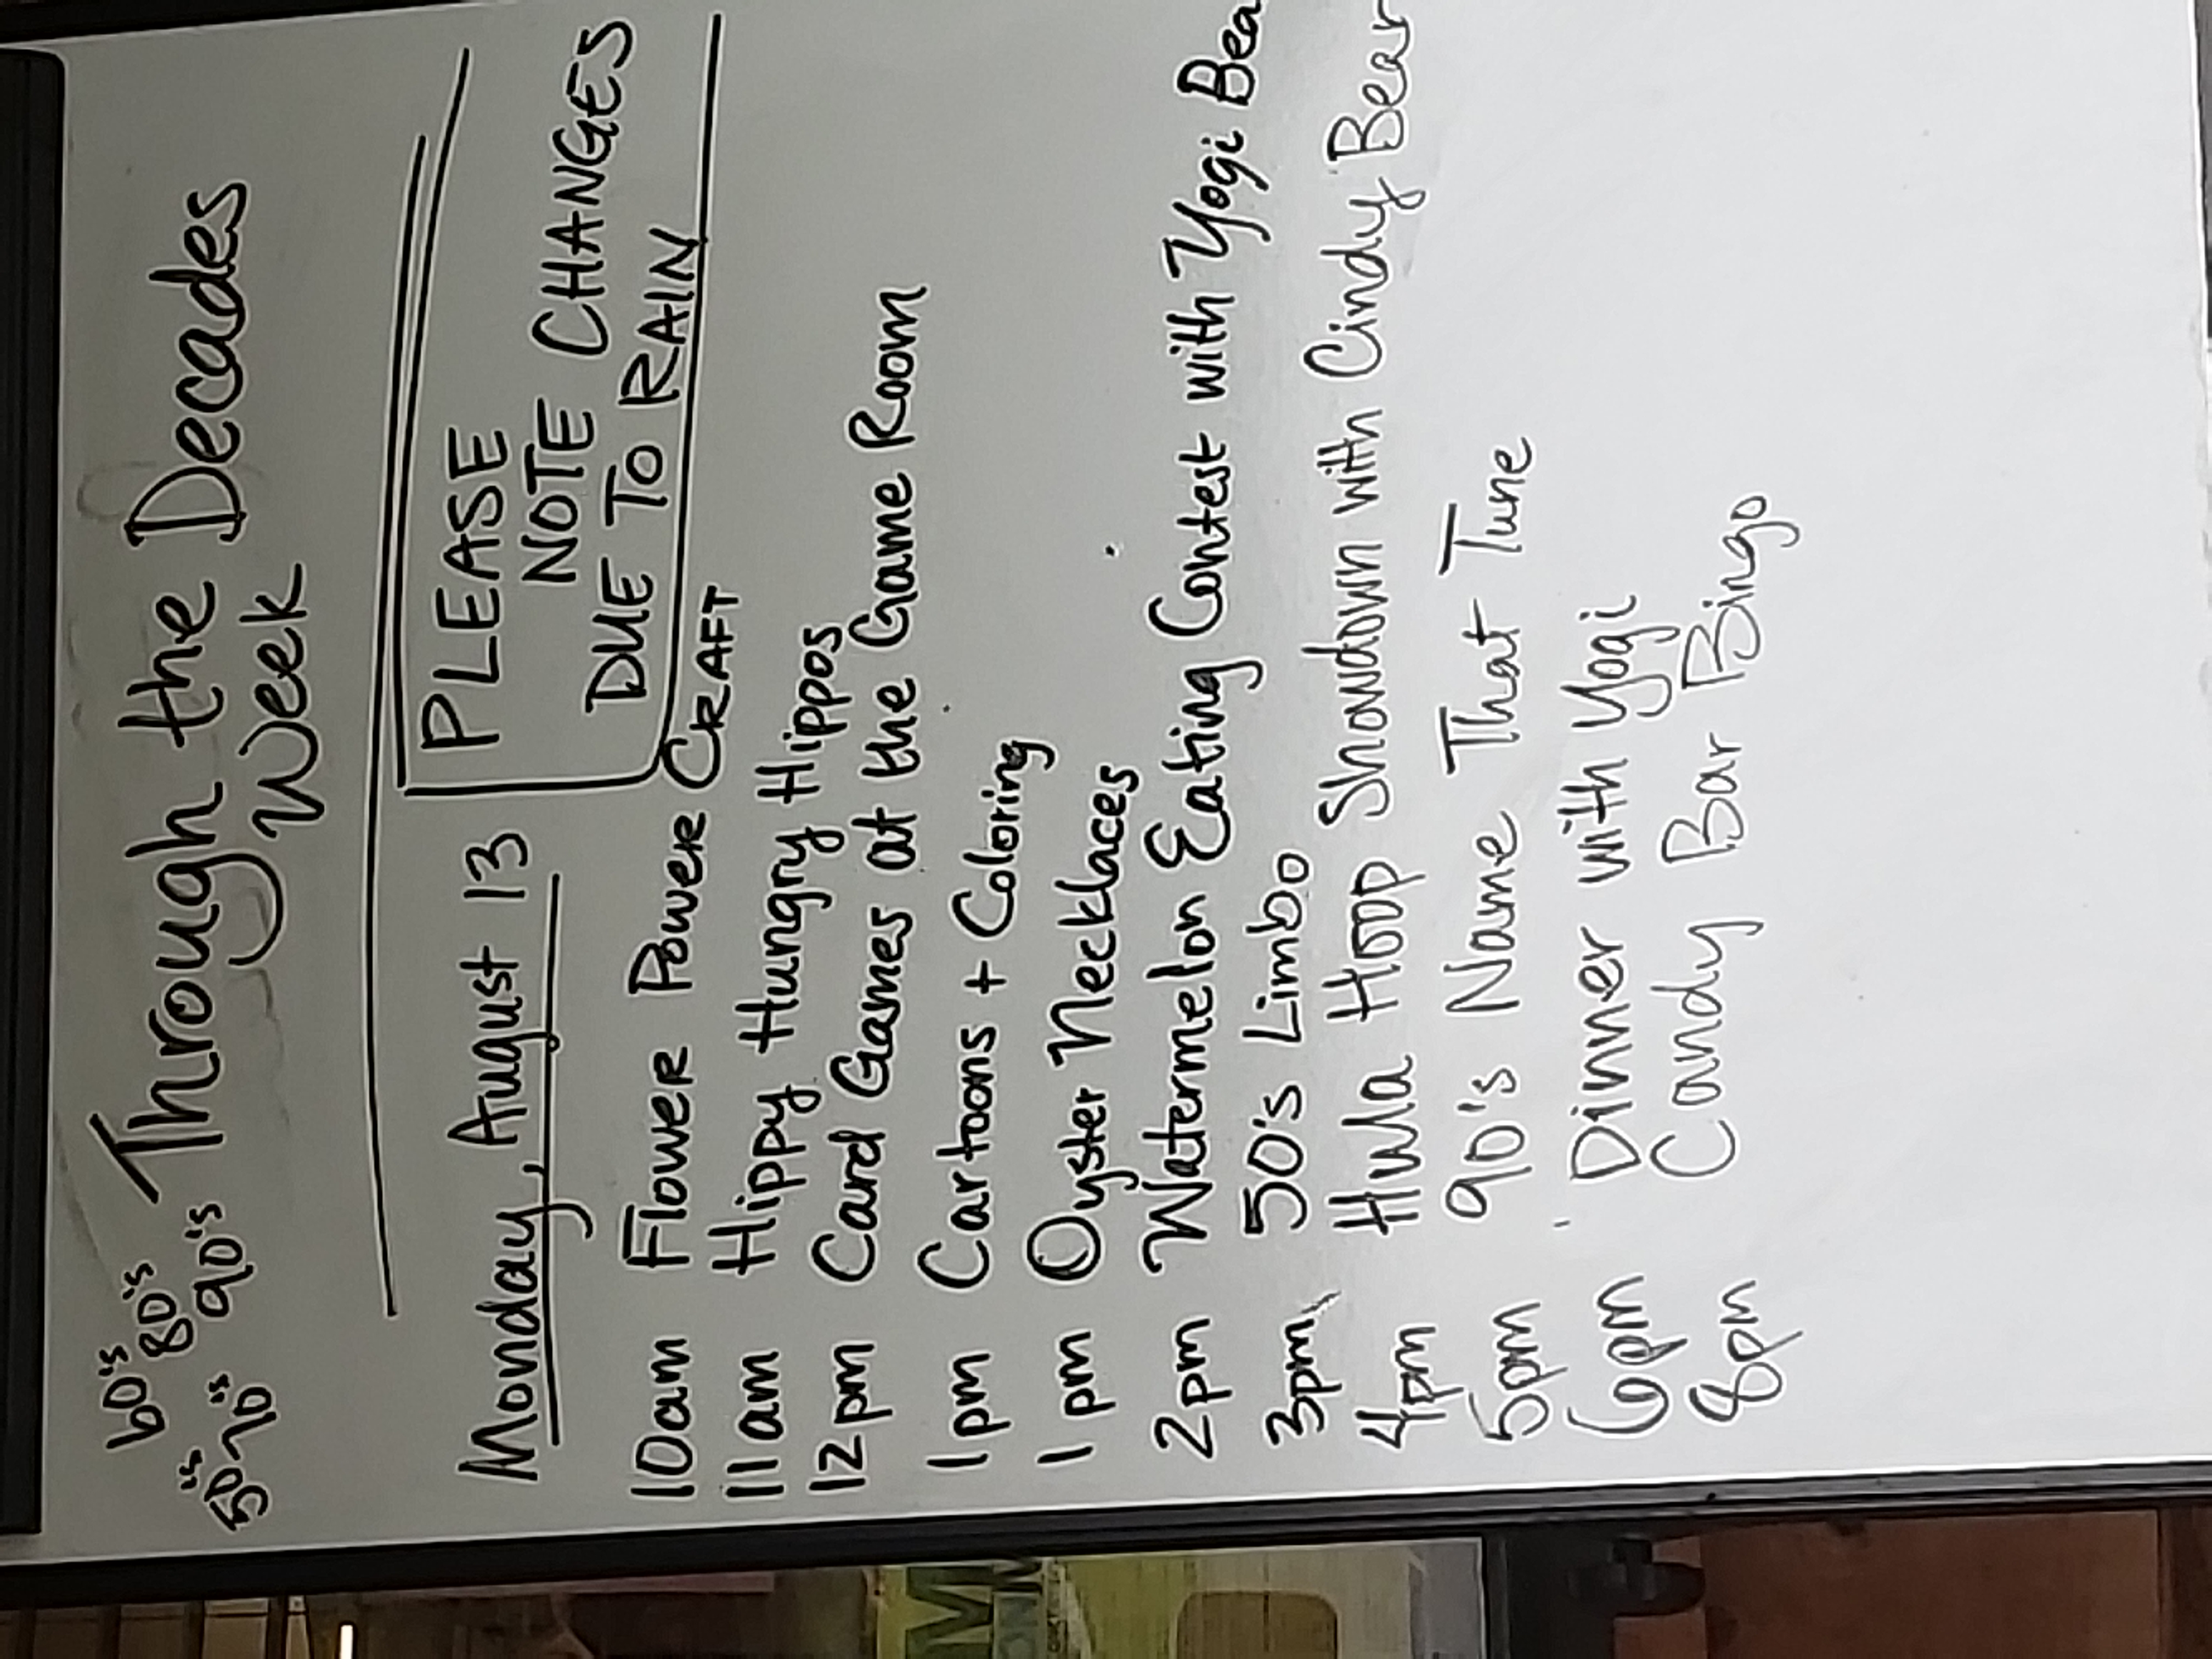 50's 60's 70's 80's 90's Through the Decades
Week
Monday, August 13
PLEASE
NOTE CHANGES
DUE TO RAIN
10am Flower Power Craft
11am Hippy Hungry Hippos
12pm Card Games at the Game Room
1pm Cartoons + Coloring
1pm Oyster Necklaces
2pm Watermelon Eating Contest with Yogi Bea
3pm 50's Limbo
4pm Hula Hoop Showdown with Cindy Bear
5pm 90's Name That Tune
6pm Dinner with Yogi
8pm Candy Bar Bingo